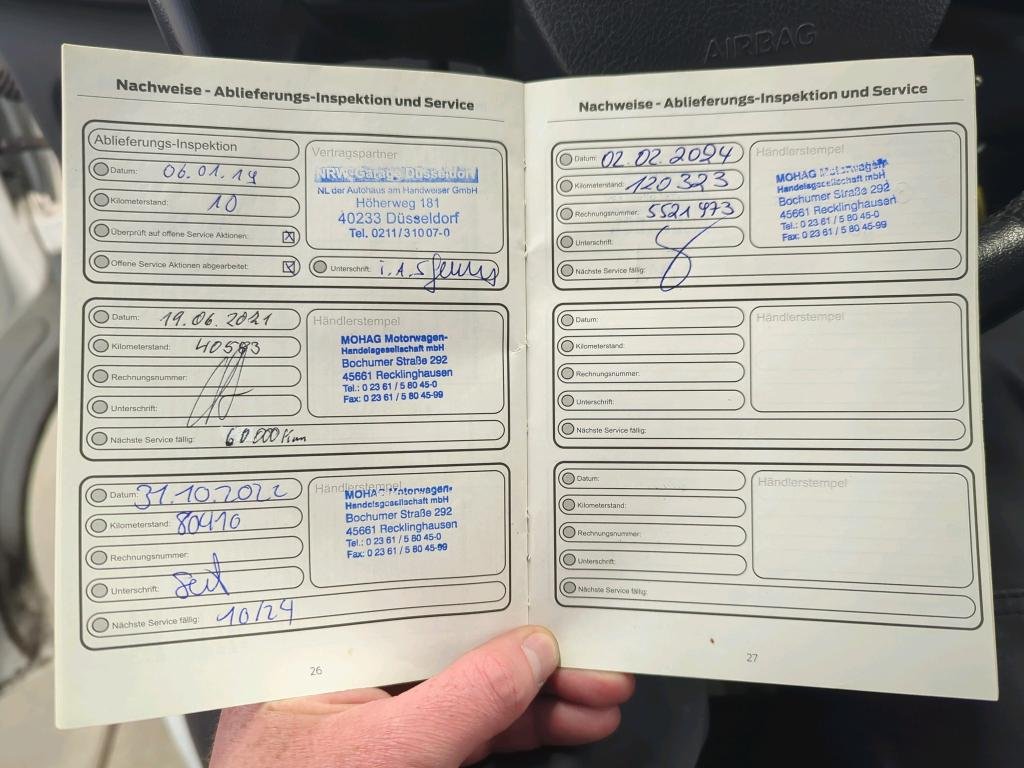 AIRBAG
Nachweise - Ablieferungs-Inspektion und Service
Ablieferungs-Inspektion
Datum: 06.01.19
Kilometerstand: 10
Überprüft auf offene Service Aktionen: X
Offene Service Aktionen abgearbeitet: X
Vertragspartner
NRW-Garage Düsseldorf
NL der Autohaus am Handweiser GmbH
Höherweg 181
40233 Düsseldorf
Tel. 0211/31007-0
Unterschrift: i.A.
Datum: 19.06.2021
Kilometerstand: 40593
Rechnungsnummer:
Unterschrift:
Nächste Service fällig: 60 000 Km
Händlerstempel
MOHAG Motorwagen-
Handelsgesellschaft mbH
Bochumer Straße 292
45661 Recklinghausen
Tel.: 0 23 61 / 5 80 45-0
Fax: 0 23 61 / 5 80 45-99
Datum: 31.10.2022
Kilometerstand: 80416
Rechnungsnummer:
Unterschrift:
Nächste Service fällig: 10/24
Händlerstempel
MOHAG Motorwagen-
Handelsgesellschaft mbH
Bochumer Straße 292
45661 Recklinghausen
Tel.: 0 23 61 / 5 80 45-0
Fax: 0 23 61 / 5 80 45-99
26
Nachweise - Ablieferungs-Inspektion und Service
Datum: 02.02.2024
Kilometerstand: 120323
Rechnungsnummer: 5521973
Unterschrift:
Nächste Service fällig:
Händlerstempel
MOHAG Motorwagen-
Handelsgesellschaft mbH
Bochumer Straße 292
45661 Recklinghausen
Tel.: 0 23 61 / 5 80 45-0
Fax: 0 23 61 / 5 80 45-99
Datum:
Kilometerstand:
Rechnungsnummer:
Unterschrift:
Nächste Service fällig:
Händlerstempel
Datum:
Kilometerstand:
Rechnungsnummer:
Unterschrift:
Nächste Service fällig:
Händlerstempel
27